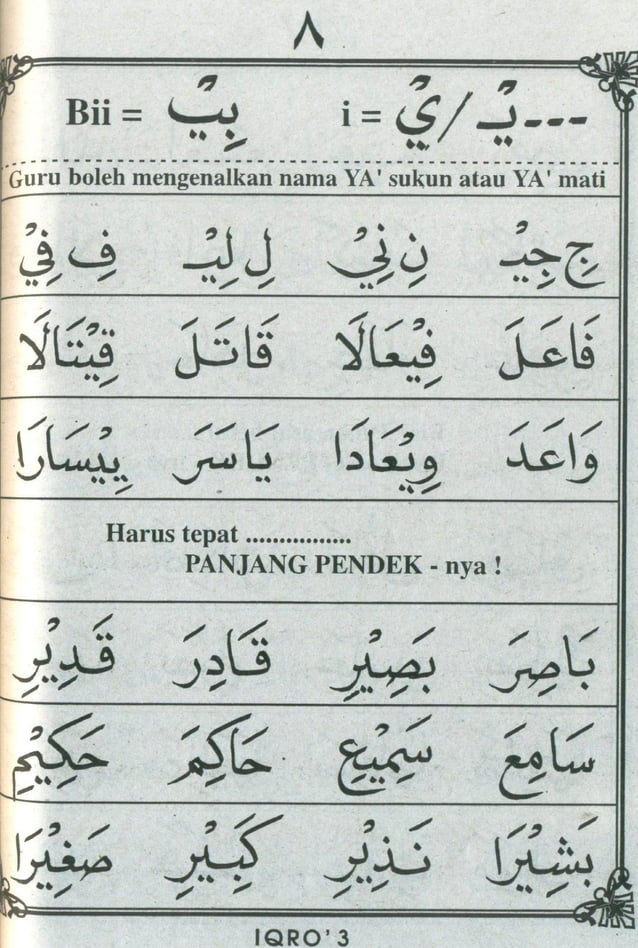 ٨
Bii = بِيْ i = ---يْـ / يْ
Guru boleh mengenalkan nama YA' sukun atau YA' mati
جِ جِيْـ نِ نِيْ لِ لِيْـ فِ فِيْ
فَاعَلَ فِيْعَالًا قَاتَلَ قِيْتَالًا
وَاعَدَ وِيْعَادَا يَاسَرَ يِيْسَارَا
Harus tepat .................
PANJANG PENDEK - nya !
بَاصِرَ بَصِيْرِ قَادِرَ قَدِيْرِ
سَامِعَ سَمِيْعِ حَاكِمَ حَكِيْمِ
بَشِيْرَا نَذِيْرِ كَبِيْرِ صَغِيْرَا
IQRO' 3